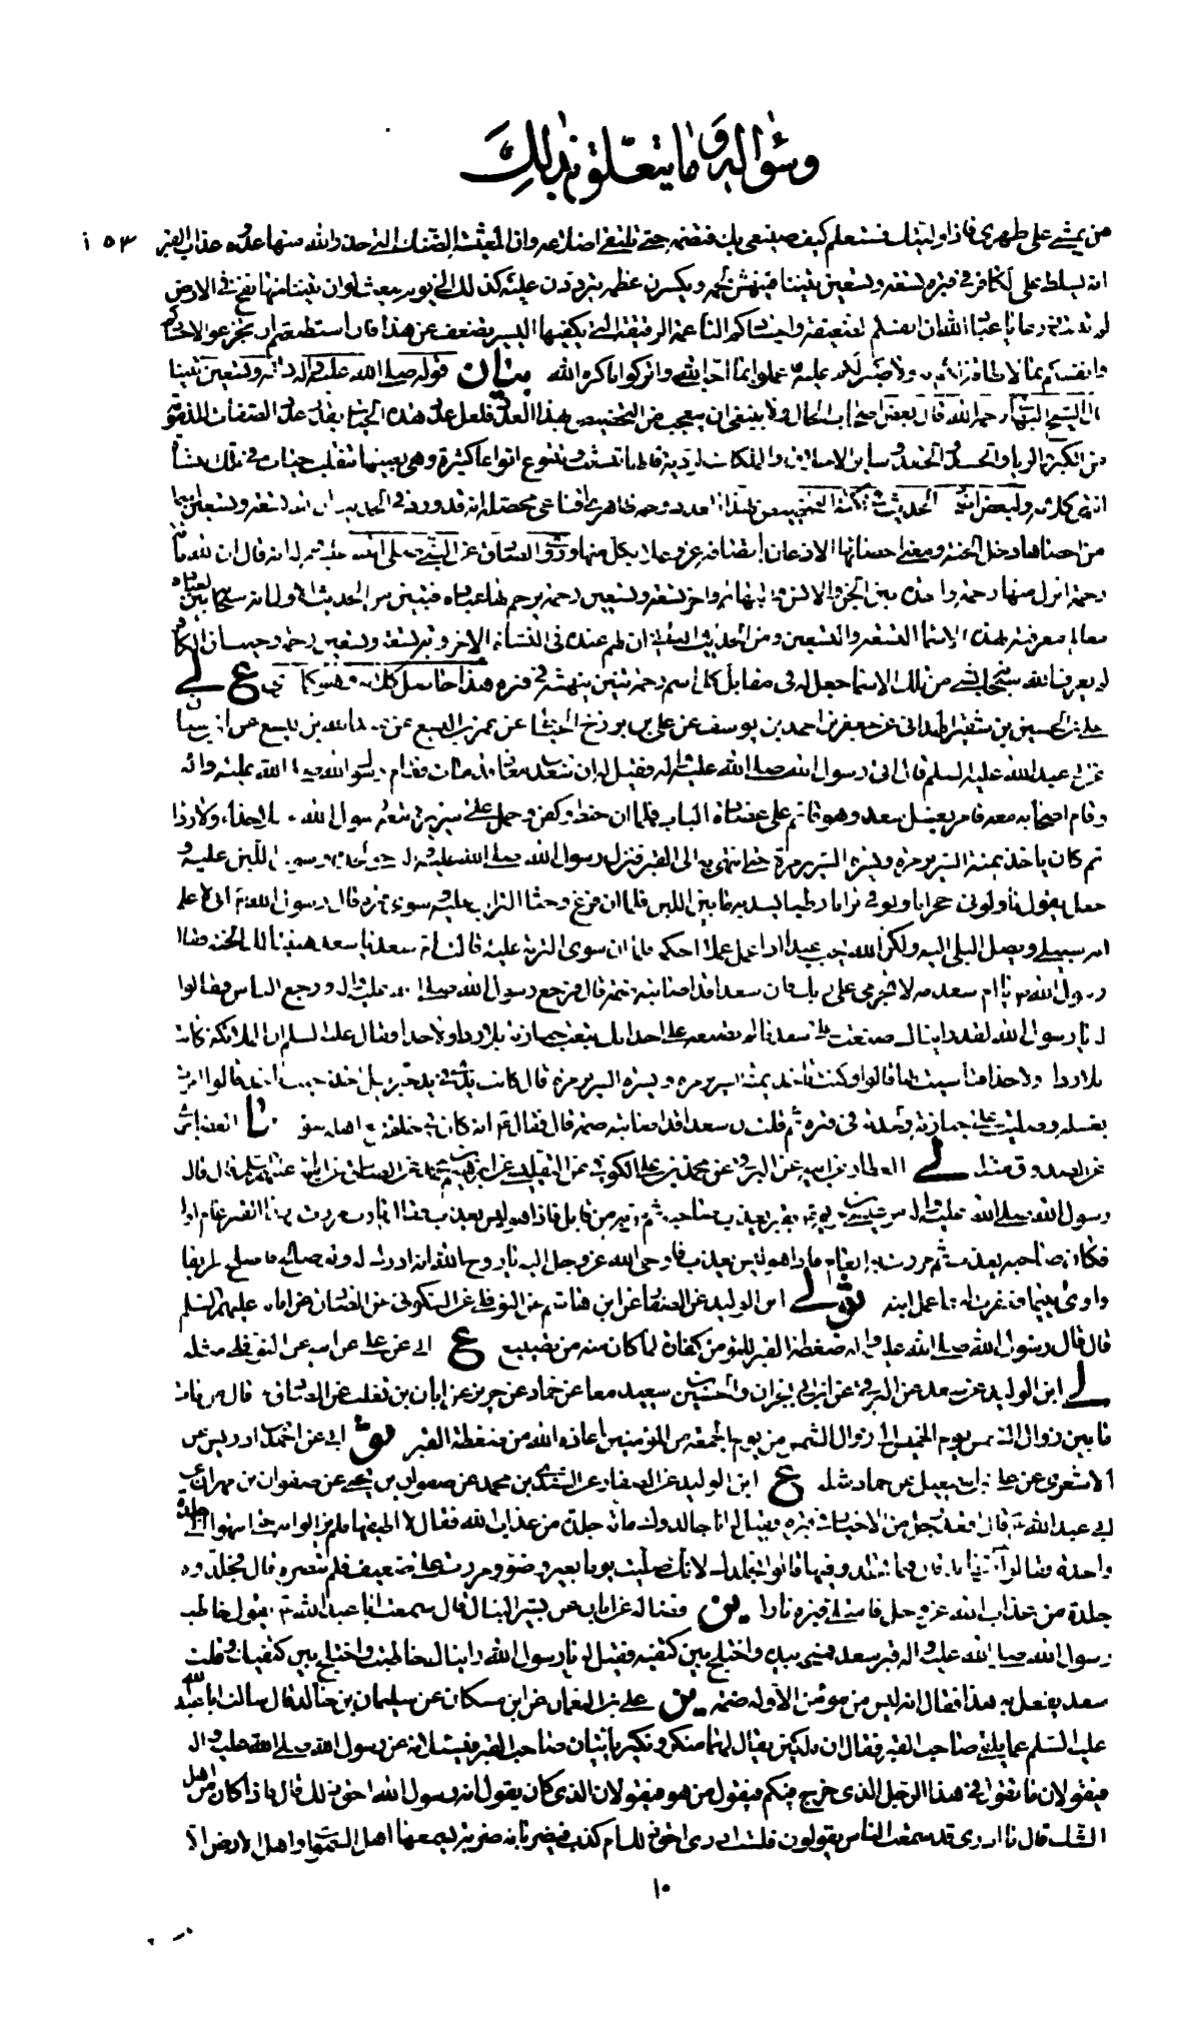 وسؤاله وما يتعلق بذلك
من يمشي على ظهري فاذا وليتك فستعلم كيف صنيعي بك فتضمه حتى تلتقي اضلاعه وان المعيشة الضنك التي حذر الله منها عدوه عذاب القبر ١٥٣
انه يسلط على الكافر في قبره تسعة وتسعين تنينا فينهشن لحمه ويكسرن عظمه يترددن عليه كذلك الى يوم يبعث لو ان تنينا منها نفخ في الارض
لم تنبت زرعا يا عباد الله ان انفسكم الضعيفة واجسادكم الناعمة الرقيقة التي يكفيها اليسير تضعف عن هذا فان استطعتم ان تجزعوا لاجسادكم
وانفسكم بما لا طاقة لكم به ولا صبر لكم عليه فاعملوا بما احب الله واتركوا ما كره الله بيان قوله صلى الله عليه وآله تسعة وتسعين تنينا
قال الشيخ البهائي رحمه الله قال بعض اصحاب الكمال ولا ينبغي ان يتعجب من التخصيص بهذا العدد فلعل عدد هذه الحيات بقدر عدد الصفات المذمومة
من الكبر والريا والحسد والحقد وساير الاخلاق والملكات الردية فانها تتشعب وتتنوع انواعا كثيرة وهي بعينها تنقلب حيات في تلك النشأة
انتهى كلامه ولبعض اصحاب الحديث في نكتة التخصيص بهذا العدد وجه ظاهري اقناعي محصله انه قد ورد في الحديث ان لله تسعة وتسعين اسما
من احصاها دخل الجنة ومعنى احصائها الاذعان باتصافه عز وعلا بكل منها وروى الصادق عن النبي صلى الله عليه وآله انه قال ان لله مائة
رحمة انزل منها رحمة واحدة بين الجن والانس والبهايم واخر تسعة وتسعين رحمة يرحم بها عباده فتبين من الحديث الاول انه سبحانه بين لعباده
معالم معرفته بهذه الاسماء التسعة والتسعين ومن الحديث الثاني ان لهم عنده في النشأة الاخروية تسعة وتسعين رحمة وحيث ان الكافر
لم يعرف الله سبحانه بشيء من تلك الاسماء جعل له في مقابل كل اسم رحمة تنين ينهشه في قبره هذا حاصل كلامه وهو كما ترى ع لى
علي بن الحسين بن شقير الهمداني عن جعفر بن احمد بن يوسف عن علي بن بزرج الحناط عن عمرو بن اليسع عن عبد الله بن اليسع عن ابن سنان
عن ابي عبد الله عليه السلم قال اتى رسول الله صلى الله عليه وآله فقيل له ان سعد بن معاذ قد مات فقام رسول الله صلى الله عليه وآله
وقام اصحابه معه فامر بغسل سعد وهو قائم على عضادة الباب فلما ان حنط وكفن وحمل على سريره تبعه رسول الله بلا حذاء ولا رداء
ثم كان ياخذ يمنة السرير مرة ويسرة السرير مرة حتى انتهى به الى القبر فنزل رسول الله صلى الله عليه وآله حتى لحده وسوى اللبن عليه و
جعل يقول ناولوني حجرا ناولوني ترابا رطبا يسد به ما بين اللبن فلما ان فرغ وحثا التراب عليه وسوى قبره قال رسول الله اني لاعلم
انه سيبلى ويصل البلى اليه ولكن الله يحب عبدا اذا عمل عملا احكمه فلما ان سوى التربة عليه قالت ام سعد يا سعد هنيئا لك الجنة فقال
رسول الله يا ام سعد مه لا تجزمي على ربك فان سعدا قد اصابته ضمة قال فرجع رسول الله صلى الله عليه وآله ورجع الناس فقالوا
له يا رسول الله لقد رايناك صنعت على سعد ما لم تصنعه على احد انك تبعت جنازته بلا رداء ولا حذاء فقال عليه السلم ان الملائكة كانت
بلا رداء ولا حذاء فتاسيت بها قالوا وكنت تاخذ يمنة السرير مرة ويسرة السرير مرة قال كانت يدي في يد جبرئيل اخذ حيث ياخذ قالوا امرت
بغسله وصليت على جنازته ولحدته في قبره ثم قلت ان سعدا قد اصابته ضمة قال فقال نعم انه كان في خلقه مع اهله سوء ما الغضايري
عن الصدوق مثله لى العطار عن ابيه عن البرقي عن محمد بن علي الكوفي عن التفليسي عن ابراهيم بن محمد عن الصادق عن ابائه عليهم السلم قال قال
رسول الله صلى الله عليه وآله مر عيسى بن مريم بقبر يعذب صاحبه ثم مر به من قابل فاذا هو ليس يعذب فقال يا رب مررت بهذا القبر عام اول
فكان صاحبه يعذب ثم مررت به العام فاذا هو ليس يعذب فاوحى الله عز وجل اليه يا روح الله انه ادرك له ولد صالح فاصلح طريقا
واوى يتيما فغفرت له بما عمل ابنه ثو لى ابن الوليد عن الصفار عن ابن هاشم عن النوفلي عن السكوني عن الصادق عن ابائه عليهم السلم
قال قال رسول الله صلى الله عليه وآله ضغطة القبر للمؤمن كفارة لما كان منه من تضييع ع ابي عن علي عن ابيه عن النوفلي مثله
لى ابن الوليد عن سعد عن البرقي عن ابن ابي نجران والحسين بن سعيد معا عن حماد عن حريز عن ابان بن تغلب عن الصادق قال من مات
ما بين زوال الشمس يوم الخميس الى زوال الشمس من يوم الجمعة من المؤمنين اعاذه الله من ضغطة القبر ثو ابي عن احمد بن ادريس عن
الاشعري عن علي بن اسمعيل عن حماد مثله ع ابن الوليد عن الصفار عن السندي بن محمد عن صفوان بن يحيى عن صفوان بن مهران عن
ابي عبد الله قال اقعد رجل من الاخيار في قبره فقيل له انا جالدوك مائة جلدة من عذاب الله فقال لا اطيقها فلم يزالوا به حتى انتهوا الى جلدة
واحدة فقالوا ليس منها بد قال فيما تجلدونيها قالوا نجلدك لانك صليت يوما بغير وضوء ومررت على ضعيف فلم تنصره قال فجلدوه
جلدة من عذاب الله عز وجل فامتلى قبره نارا ين فضالة عن ابان عن بشير النبال قال سمعت ابا عبد الله يقول خاطب
رسول الله صلى الله عليه وآله قبر سعد فمسحه بيده واختلج بين كتفيه فقيل له يا رسول الله رايناك خاطبت واختلج بين كتفيك وقلت
سعد يفعل به هذا فقال انه ليس من مؤمن الا وله ضمة ين علي بن النعمان عن ابن مسكان عن سليمان بن خالد قال سالت ابا عبد الله
عليه السلم عما يلقى صاحب القبر فقال ان ملكين يقال لهما منكر ونكير ياتيان صاحب القبر فيسئلانه عن رسول الله صلى الله عليه وآله
فيقولان ما تقول في هذا الرجل الذي خرج فيكم فيقول من هو فيقولان الذي كان يقول انه رسول الله احق ذلك قال فاذا كان من اهل
الشك قال ما ادري قد سمعت الناس يقولون فلست ادري احق ذلك ام كذب فيضربانه ضربة يسمعها اهل السموات واهل الارض الا
١٠